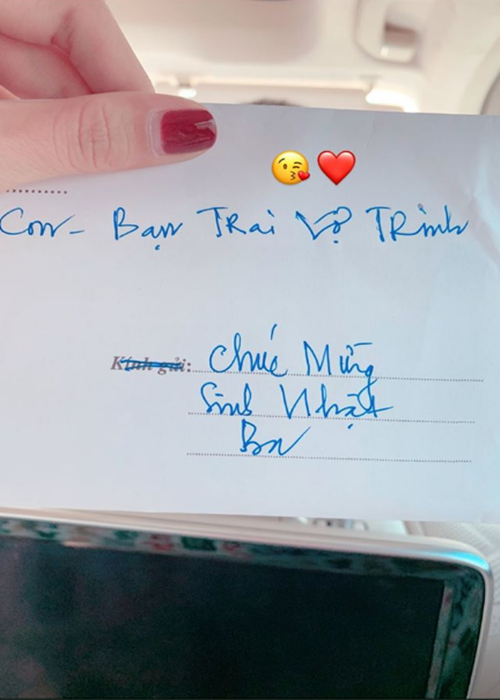 😘❤️
Con - Bạn Trai Vợ Trình
Kính gửi: Chúc Mừng
Sinh Nhật
Ba